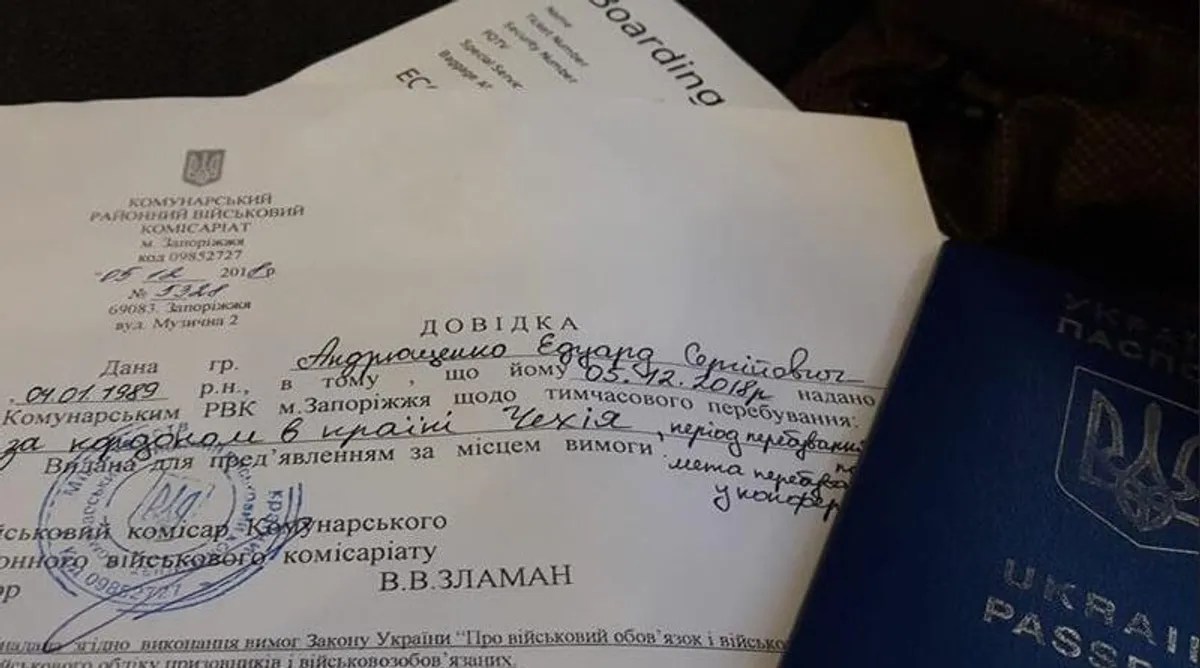 Boarding
Name
Ticket Number
Security Number
FQTV
Special Servic
Baggage
КОМУНАРСЬКИЙ
РАЙОННИЙ ВІЙСЬКОВИЙ
КОМІСАРІАТ
м. Запоріжжя
код 09852727
"05 12 2018р
№ 5328
69083. Запоріжжя
вул. Музична 2
ДОВІДКА
Дана гр. Андрющенко Едуард Сергійович
04.01.1989 р.н., в тому , що йому 05.12.2018р надано
Комунарським РВК м.Запоріжжя щодо тимчасового перебування:
за кордоном в країні Чехія , період перебування
Видана для пред’явленням за місцем вимоги мета перебува
у конфер
йськовий комісар Комунарського
онного військового комісаріату
ор В.В.ЗЛАМАН
09852727
надано згідно виконання вимог Закону України “Про військовий обов’язок і військо
йськового обліку призовників і військовозобов’язаних.
УКРАЇ
ПАСПО
UKRAI
PASS